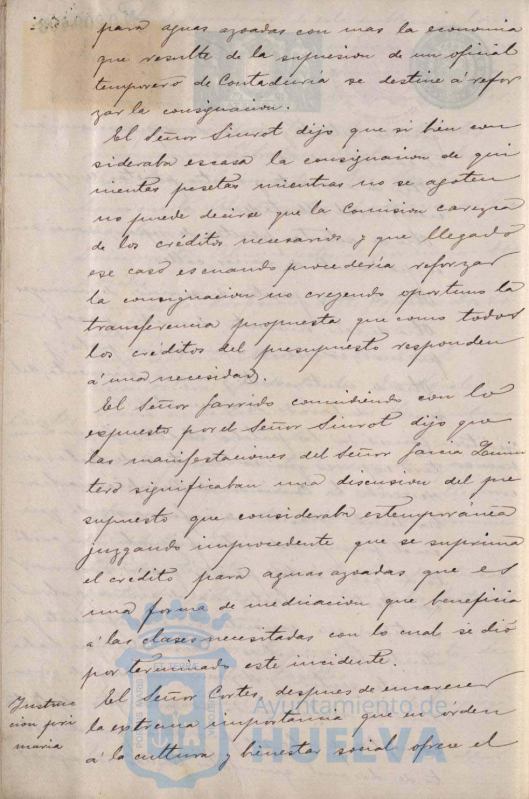 para aguas azoadas con mas la economia
que resulte de la supresion de un oficial
temporero de Contaduría se destine á refor
zar la consignacion.
El Señor Siurot dijo que si bien con
sideraba escasa la consignacion de qui
nientas pesetas mientras no se agoten
no puede decirse que la Comision carezca
de los créditos necesarios y que llegado
ese caso es cuando procedería reforzar
la consignacion no creyendo oportuno la
transferencia propuesta que como todos
los créditos del presupuesto responden
á una necesidad.
El Señor Garrido coincidiendo con lo
expuesto por el Señor Siurot dijo que
las manifestaciones del Señor Garcia Quin
tero significaban una discusion del pre
supuesto que consideraba estemporánea
juzgando improcedente que se suprima
el crédito para aguas azoadas que es
una forma de medicacion que beneficia
á las clases necesitadas con lo cual se dió
por terminado este incidente.
Instruc
cion pri
maria
El Señor Cortes, despues de encarecer
la extrema importancia que en órden
á la cultura y bienestar social ofrece el
Ayuntamiento de
HUELVA